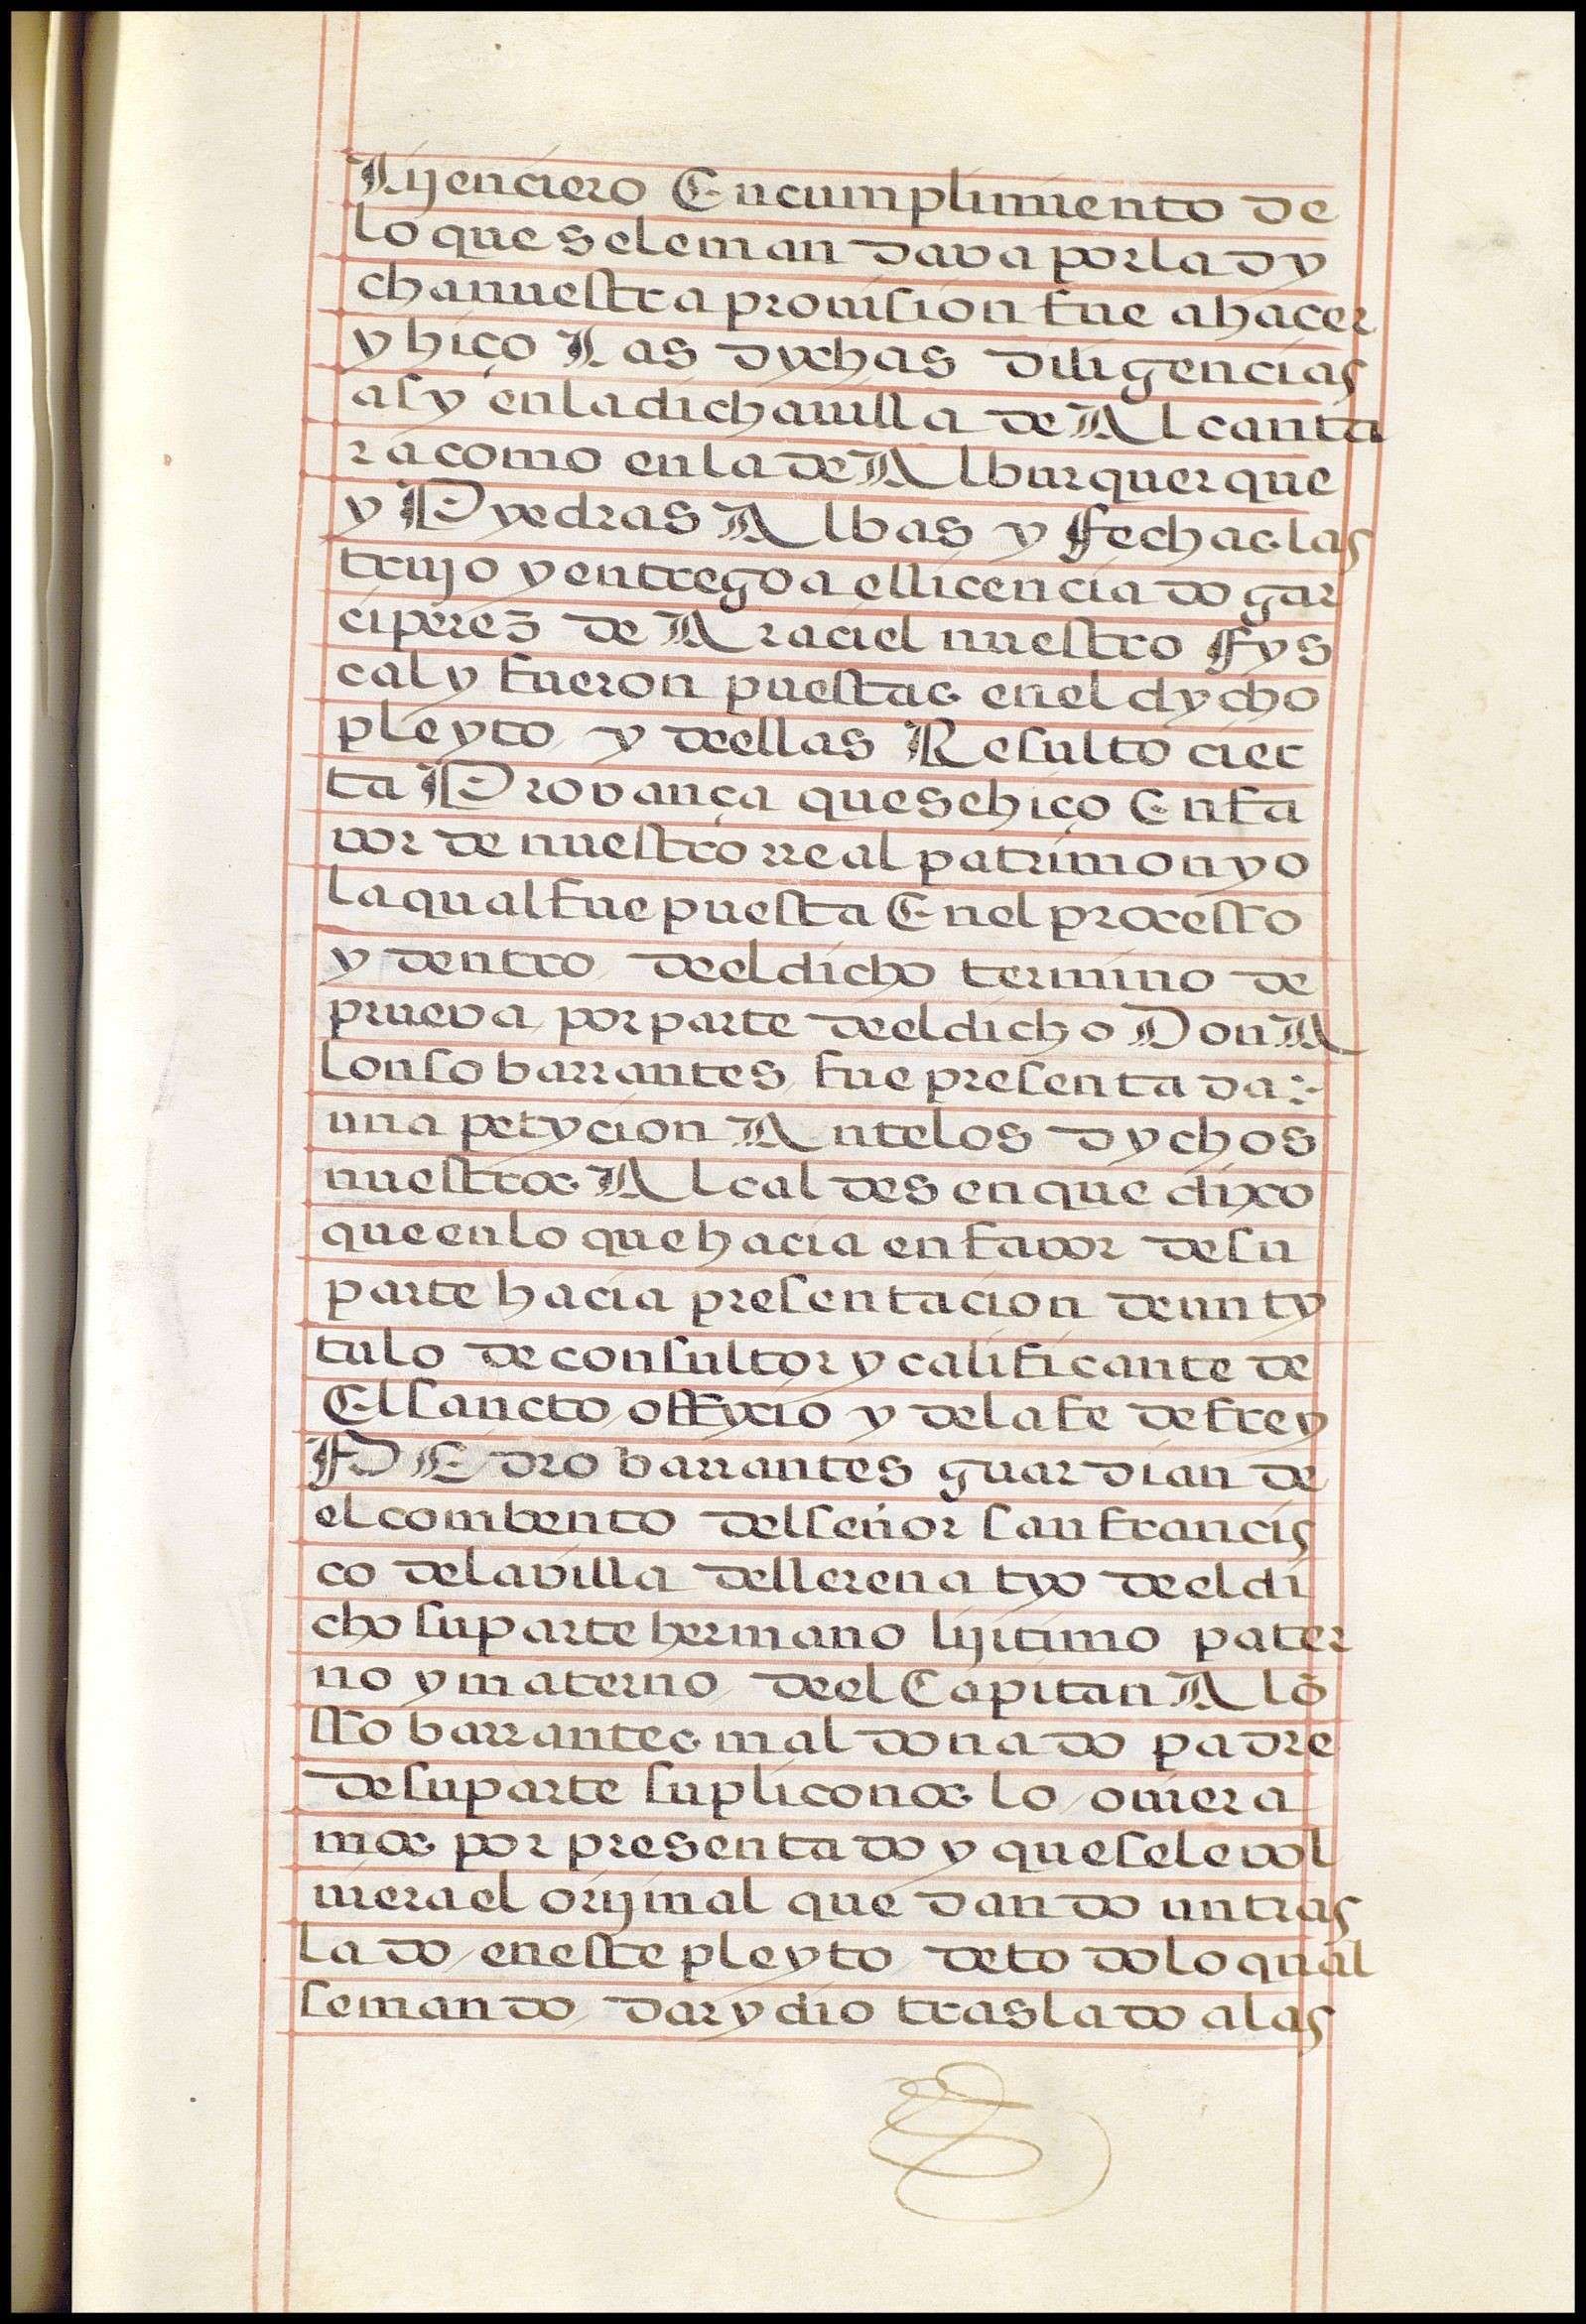 Lijenciero En cumplimiento de
lo que se le mandava por la dy
cha nuestra provision fue a hacer
y hiço Las dychas diligencias
asy en la dicha villa de Alcanta
ra como en la de Alburquerque
y Pyedras Albas y fechas las
trujo y entrego a el licenciado gar
ciperez de Araciel nuestro fys
cal y fueron puestas en el dycho
pleyto y de ellas Resulto cier
ta Provança que se hiço En fa
vor de nuestro rreal patrimonyo
la qual fue puesta En el processo
y dentro de el dicho termino de
prueva por parte de el dicho Don A
lonso barrantes fue presentada
una petycion Ante los dychos
nuestros Alcaldes en que dixo
que en lo que hacia en favor de su
parte hacia presentacion de un ty
tulo de consultor y calificante de
El sancto offycio y de la fe de frey
PEdro barrantes guardian de
el combento del señor san francis
co de la villa de llerena tyo de el di
cho su parte hermano lijitimo pater
no y materno de el Capitan Alõ
sso barrantes maldonado padre
de su parte suplico nos lo oviera
mos por presentado y que se le vol
viera el orijinal quedando un tras
lado en este pleyto de todo lo qual
se mando dar y dio traslado a las